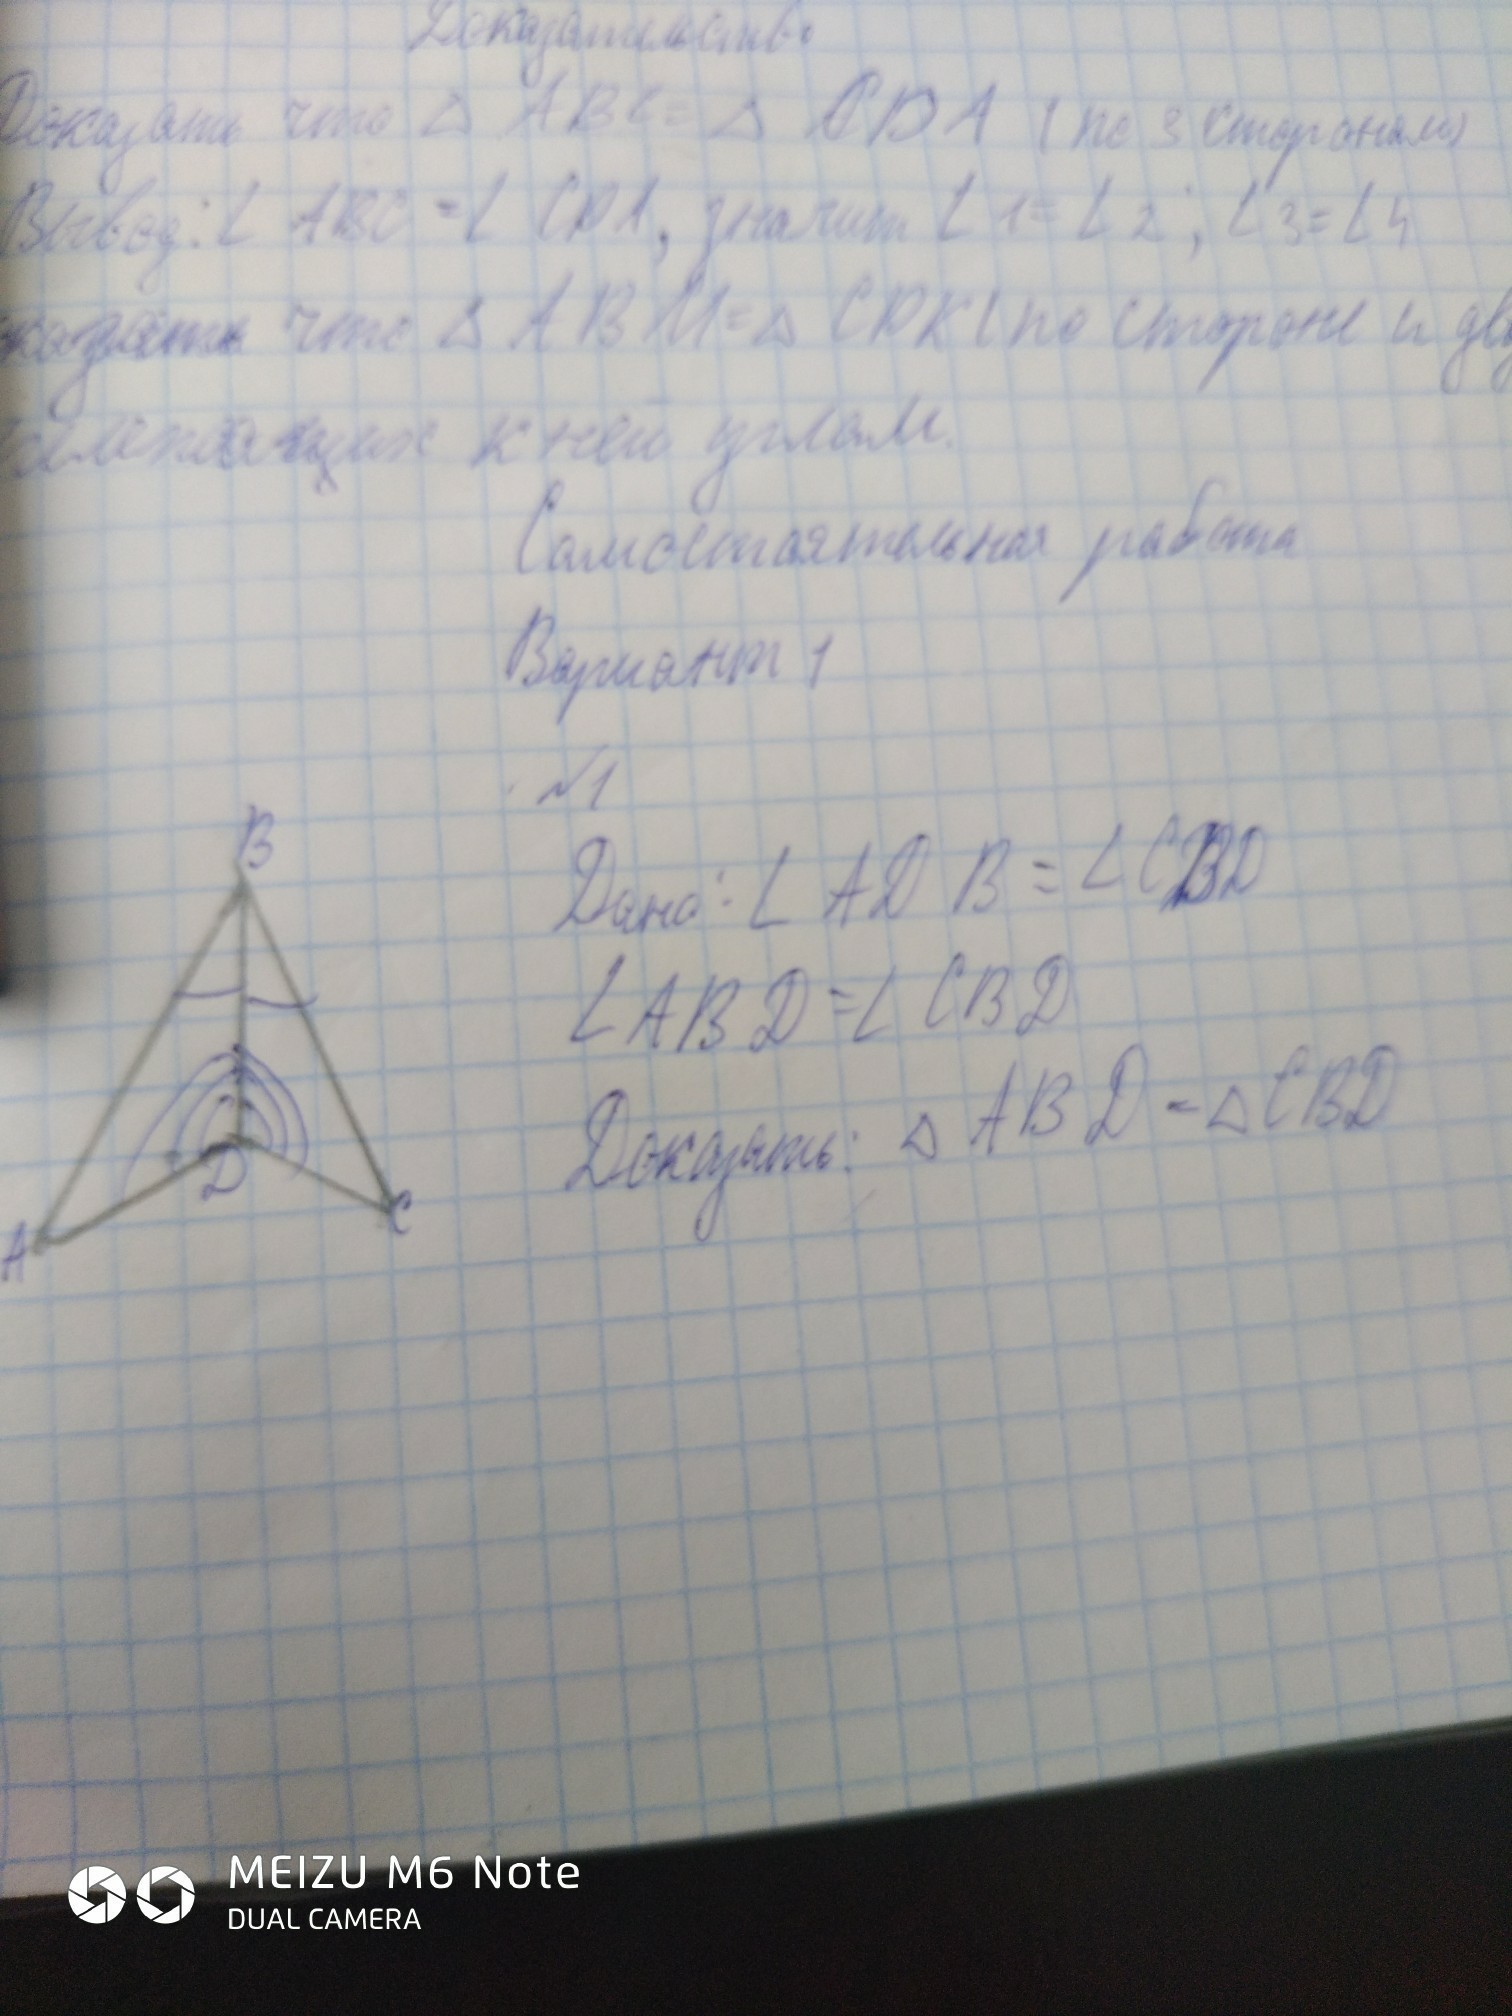 Доказательство
Доказать что △ ABC = △ CDA (по 3 сторонам)
Вывод: ∠ ABC = ∠ CDA, значит ∠1 = ∠2; ∠3 = ∠4
что △ ABM = △ CDK (по стороне и
к ней углам.
Самостоятельная работа
Вариант 1
№1
Дано: ∠ ADB = ∠ CBD
∠ ABD = ∠ CBD
Доказать: △ ABD = △ CBD
B
D
C
A
MEIZU M6 Note
DUAL CAMERA